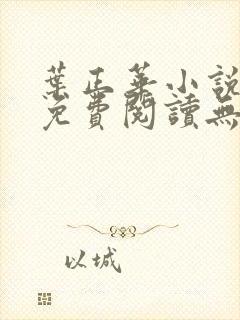 葉正華小說
免費閱讀無
以城